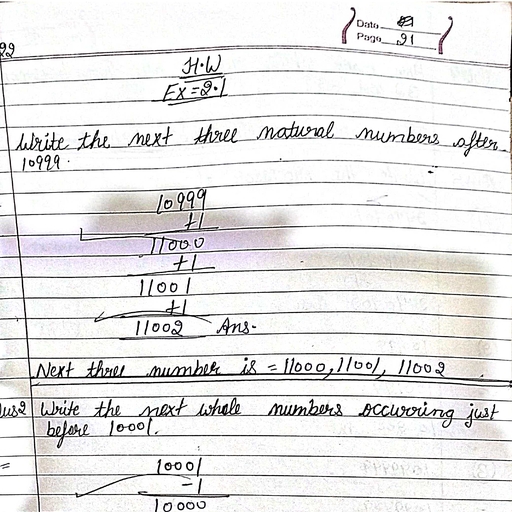 Date
Page 21
22
H.W
Ex = 2.1
Write the next three natural numbers after
10999.
10999
+1
11000
+1
11001
+1
11002 Ans-
Next three number is = 11000, 11001, 11002
Write the next whole numbers occurring just
before 10001.
=
10001
-1
10000